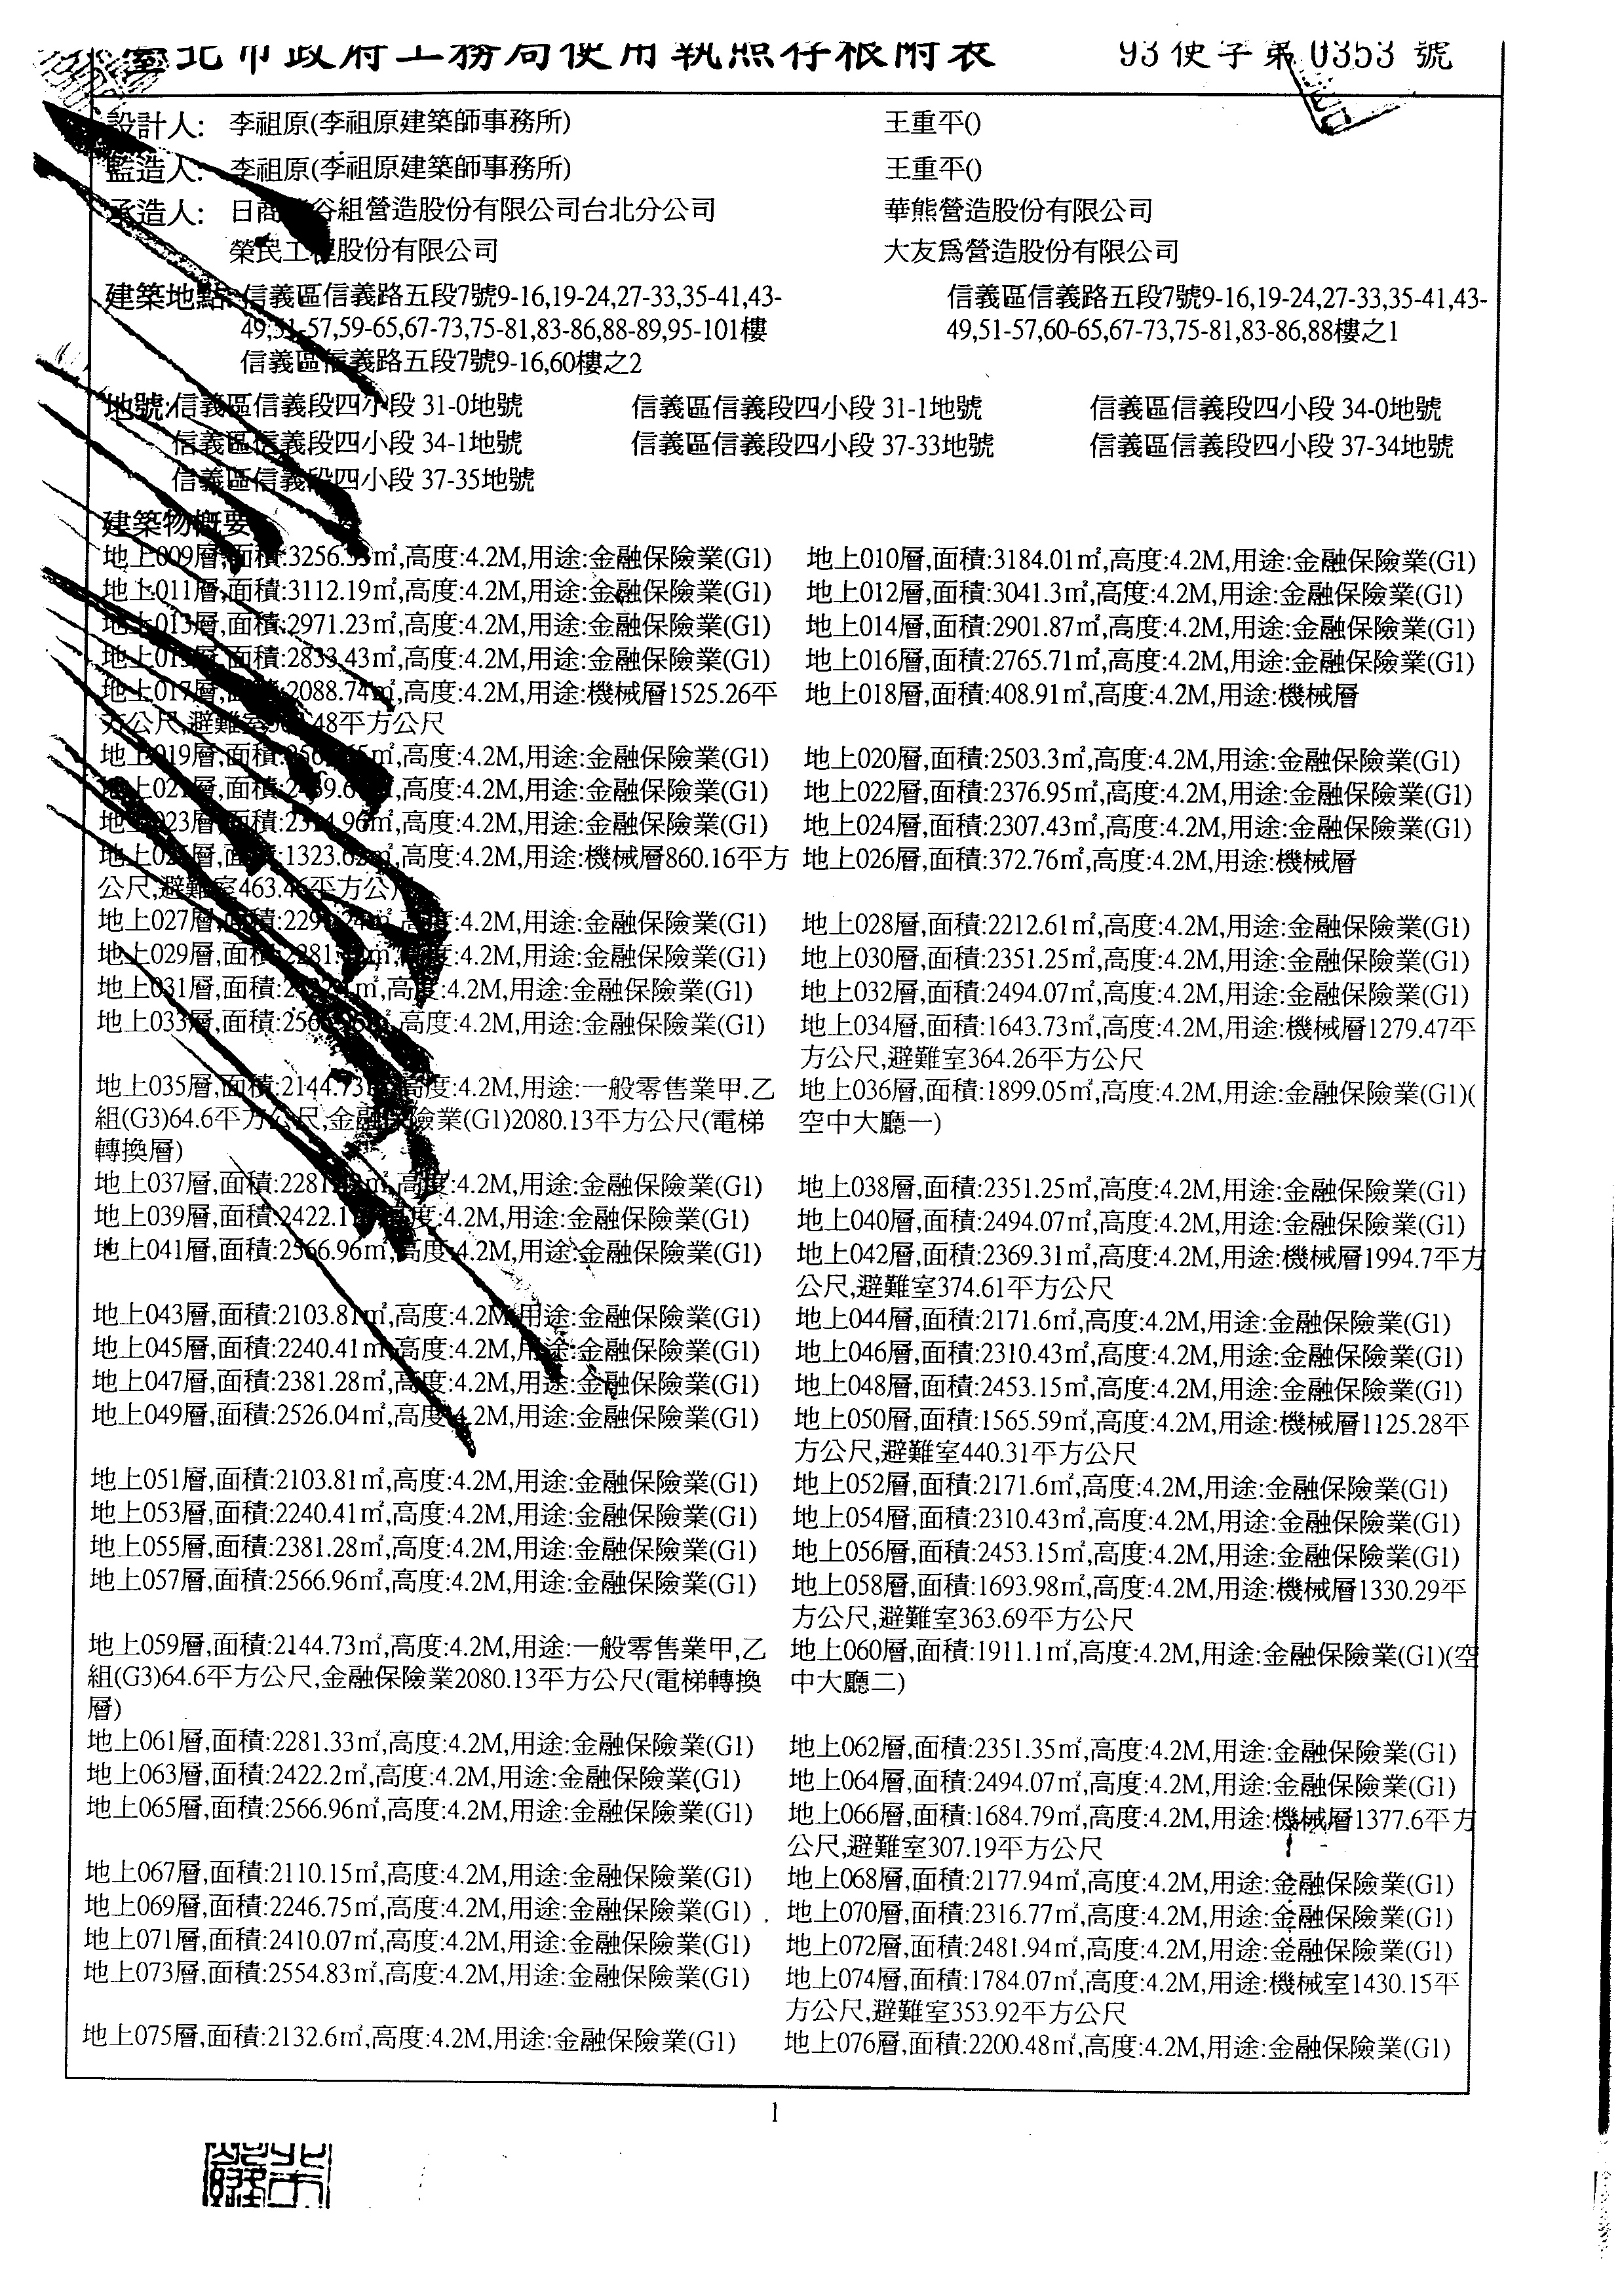 臺北市政府工務局使用執照存根附表 93使字第0353號
設計人: 李祖原(李祖原建築師事務所) 王重平()
監造人: 李祖原(李祖原建築師事務所) 王重平()
承造人: 日商 谷組營造股份有限公司台北分公司 華熊營造股份有限公司
榮民工程股份有限公司 大友爲營造股份有限公司
建築地點:信義區信義路五段7號9-16,19-24,27-33,35-41,43- 信義區信義路五段7號9-16,19-24,27-33,35-41,43-
49,51-57,59-65,67-73,75-81,83-86,88-89,95-101樓 49,51-57,60-65,67-73,75-81,83-86,88樓之1
信義區信義路五段7號9-16,60樓之2
地號:信義區信義段四小段 31-0地號 信義區信義段四小段 31-1地號 信義區信義段四小段 34-0地號
信義區信義段四小段 34-1地號 信義區信義段四小段 37-33地號 信義區信義段四小段 37-34地號
信義區信義段四小段 37-35地號
建築物概要
地上009層,面積:3256. ㎡,高度:4.2M,用途:金融保險業(G1) 地上010層,面積:3184.01㎡,高度:4.2M,用途:金融保險業(G1)
地上011層,面積:3112.19㎡,高度:4.2M,用途:金融保險業(G1) 地上012層,面積:3041.3㎡,高度:4.2M,用途:金融保險業(G1)
地上013層,面積:2971.23㎡,高度:4.2M,用途:金融保險業(G1) 地上014層,面積:2901.87㎡,高度:4.2M,用途:金融保險業(G1)
地上015層,面積:2833.43㎡,高度:4.2M,用途:金融保險業(G1) 地上016層,面積:2765.71㎡,高度:4.2M,用途:金融保險業(G1)
地上017層,面積:2088.74㎡,高度:4.2M,用途:機械層1525.26平 地上018層,面積:408.91㎡,高度:4.2M,用途:機械層
方公尺,避難室 48平方公尺
地上019層,面積: ㎡,高度:4.2M,用途:金融保險業(G1) 地上020層,面積:2503.3㎡,高度:4.2M,用途:金融保險業(G1)
地上021層,面積: ,高度:4.2M,用途:金融保險業(G1) 地上022層,面積:2376.95㎡,高度:4.2M,用途:金融保險業(G1)
地上023層,面積: ㎡,高度:4.2M,用途:金融保險業(G1) 地上024層,面積:2307.43㎡,高度:4.2M,用途:金融保險業(G1)
地上025層,面積:1323.62㎡,高度:4.2M,用途:機械層860.16平方 地上026層,面積:372.76㎡,高度:4.2M,用途:機械層
公尺,避難室463.46平方公尺
地上027層,面積: ㎡,高度:4.2M,用途:金融保險業(G1) 地上028層,面積:2212.61㎡,高度:4.2M,用途:金融保險業(G1)
地上029層,面積:2281. ㎡,高度:4.2M,用途:金融保險業(G1) 地上030層,面積:2351.25㎡,高度:4.2M,用途:金融保險業(G1)
地上031層,面積: ㎡,高度:4.2M,用途:金融保險業(G1) 地上032層,面積:2494.07㎡,高度:4.2M,用途:金融保險業(G1)
地上033層,面積: ㎡,高度:4.2M,用途:金融保險業(G1) 地上034層,面積:1643.73㎡,高度:4.2M,用途:機械層1279.47平
方公尺,避難室364.26平方公尺
地上035層,面積:2144.73㎡,高度:4.2M,用途:一般零售業甲.乙 地上036層,面積:1899.05㎡,高度:4.2M,用途:金融保險業(G1)(
組(G3)64.6平方公尺,金融保險業(G1)2080.13平方公尺(電梯 空中大廳一)
轉換層)
地上037層,面積:2281. ㎡,高度:4.2M,用途:金融保險業(G1) 地上038層,面積:2351.25㎡,高度:4.2M,用途:金融保險業(G1)
地上039層,面積:2422.1 高度:4.2M,用途:金融保險業(G1) 地上040層,面積:2494.07㎡,高度:4.2M,用途:金融保險業(G1)
地上041層,面積:2566.96㎡,高度:4.2M,用途:金融保險業(G1) 地上042層,面積:2369.31㎡,高度:4.2M,用途:機械層1994.7平方
公尺,避難室374.61平方公尺
地上043層,面積:2103.81㎡,高度:4.2M,用途:金融保險業(G1) 地上044層,面積:2171.6㎡,高度:4.2M,用途:金融保險業(G1)
地上045層,面積:2240.41㎡,高度:4.2M,用途:金融保險業(G1) 地上046層,面積:2310.43㎡,高度:4.2M,用途:金融保險業(G1)
地上047層,面積:2381.28㎡,高度:4.2M,用途:金融保險業(G1) 地上048層,面積:2453.15㎡,高度:4.2M,用途:金融保險業(G1)
地上049層,面積:2526.04㎡,高度:4.2M,用途:金融保險業(G1) 地上050層,面積:1565.59㎡,高度:4.2M,用途:機械層1125.28平
方公尺,避難室440.31平方公尺
地上051層,面積:2103.81㎡,高度:4.2M,用途:金融保險業(G1) 地上052層,面積:2171.6㎡,高度:4.2M,用途:金融保險業(G1)
地上053層,面積:2240.41㎡,高度:4.2M,用途:金融保險業(G1) 地上054層,面積:2310.43㎡,高度:4.2M,用途:金融保險業(G1)
地上055層,面積:2381.28㎡,高度:4.2M,用途:金融保險業(G1) 地上056層,面積:2453.15㎡,高度:4.2M,用途:金融保險業(G1)
地上057層,面積:2566.96㎡,高度:4.2M,用途:金融保險業(G1) 地上058層,面積:1693.98㎡,高度:4.2M,用途:機械層1330.29平
方公尺,避難室363.69平方公尺
地上059層,面積:2144.73㎡,高度:4.2M,用途:一般零售業甲,乙 地上060層,面積:1911.1㎡,高度:4.2M,用途:金融保險業(G1)(空
組(G3)64.6平方公尺,金融保險業2080.13平方公尺(電梯轉換 中大廳二)
層)
地上061層,面積:2281.33㎡,高度:4.2M,用途:金融保險業(G1) 地上062層,面積:2351.35㎡,高度:4.2M,用途:金融保險業(G1)
地上063層,面積:2422.2㎡,高度:4.2M,用途:金融保險業(G1) 地上064層,面積:2494.07㎡,高度:4.2M,用途:金融保險業(G1)
地上065層,面積:2566.96㎡,高度:4.2M,用途:金融保險業(G1) 地上066層,面積:1684.79㎡,高度:4.2M,用途:機械層1377.6平方
公尺,避難室307.19平方公尺
地上067層,面積:2110.15㎡,高度:4.2M,用途:金融保險業(G1) 地上068層,面積:2177.94㎡,高度:4.2M,用途:金融保險業(G1)
地上069層,面積:2246.75㎡,高度:4.2M,用途:金融保險業(G1) 地上070層,面積:2316.77㎡,高度:4.2M,用途:金融保險業(G1)
地上071層,面積:2410.07㎡,高度:4.2M,用途:金融保險業(G1) 地上072層,面積:2481.94㎡,高度:4.2M,用途:金融保險業(G1)
地上073層,面積:2554.83㎡,高度:4.2M,用途:金融保險業(G1) 地上074層,面積:1784.07㎡,高度:4.2M,用途:機械室1430.15平
方公尺,避難室353.92平方公尺
地上075層,面積:2132.6㎡,高度:4.2M,用途:金融保險業(G1) 地上076層,面積:2200.48㎡,高度:4.2M,用途:金融保險業(G1)
1